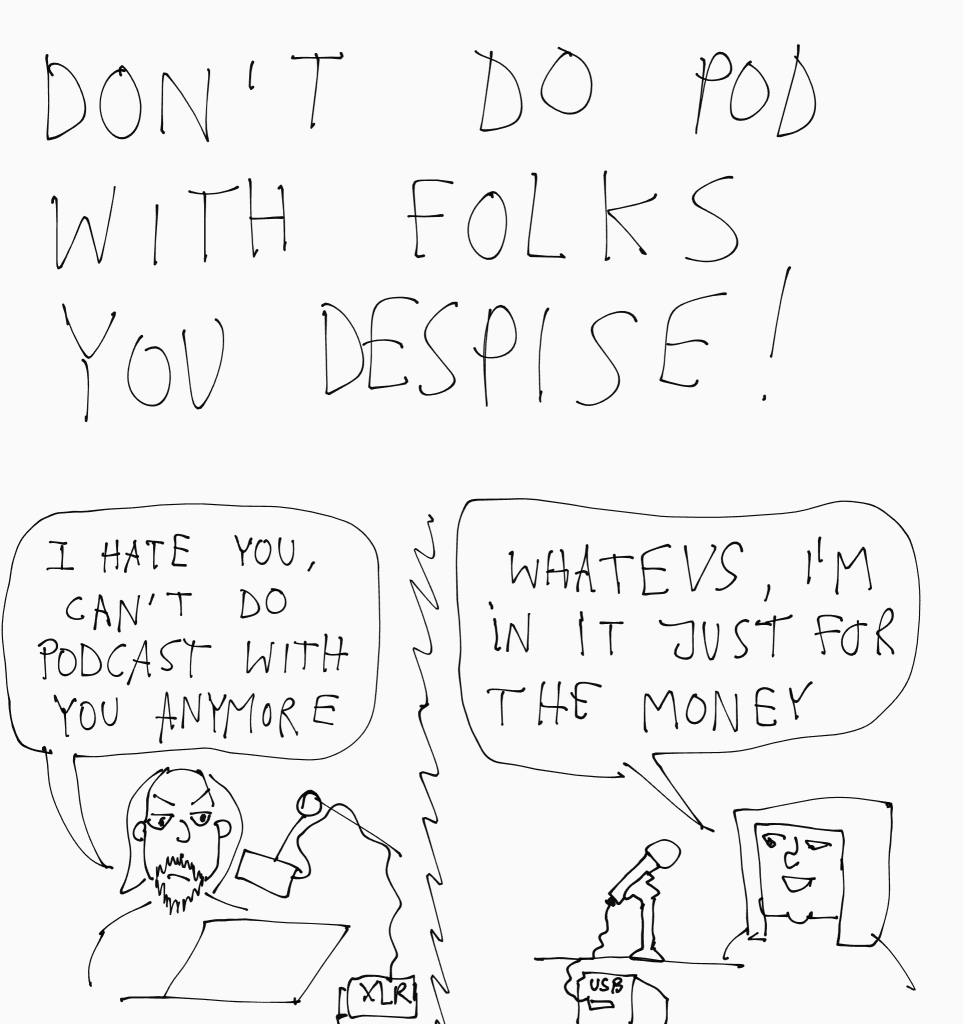 DON'T DO POD
WITH FOLKS
YOU DESPISE!
I HATE YOU,
CAN'T DO
PODCAST WITH
YOU ANYMORE
WHATEVS, I'M
IN IT JUST FOR
THE MONEY
XLR
USB